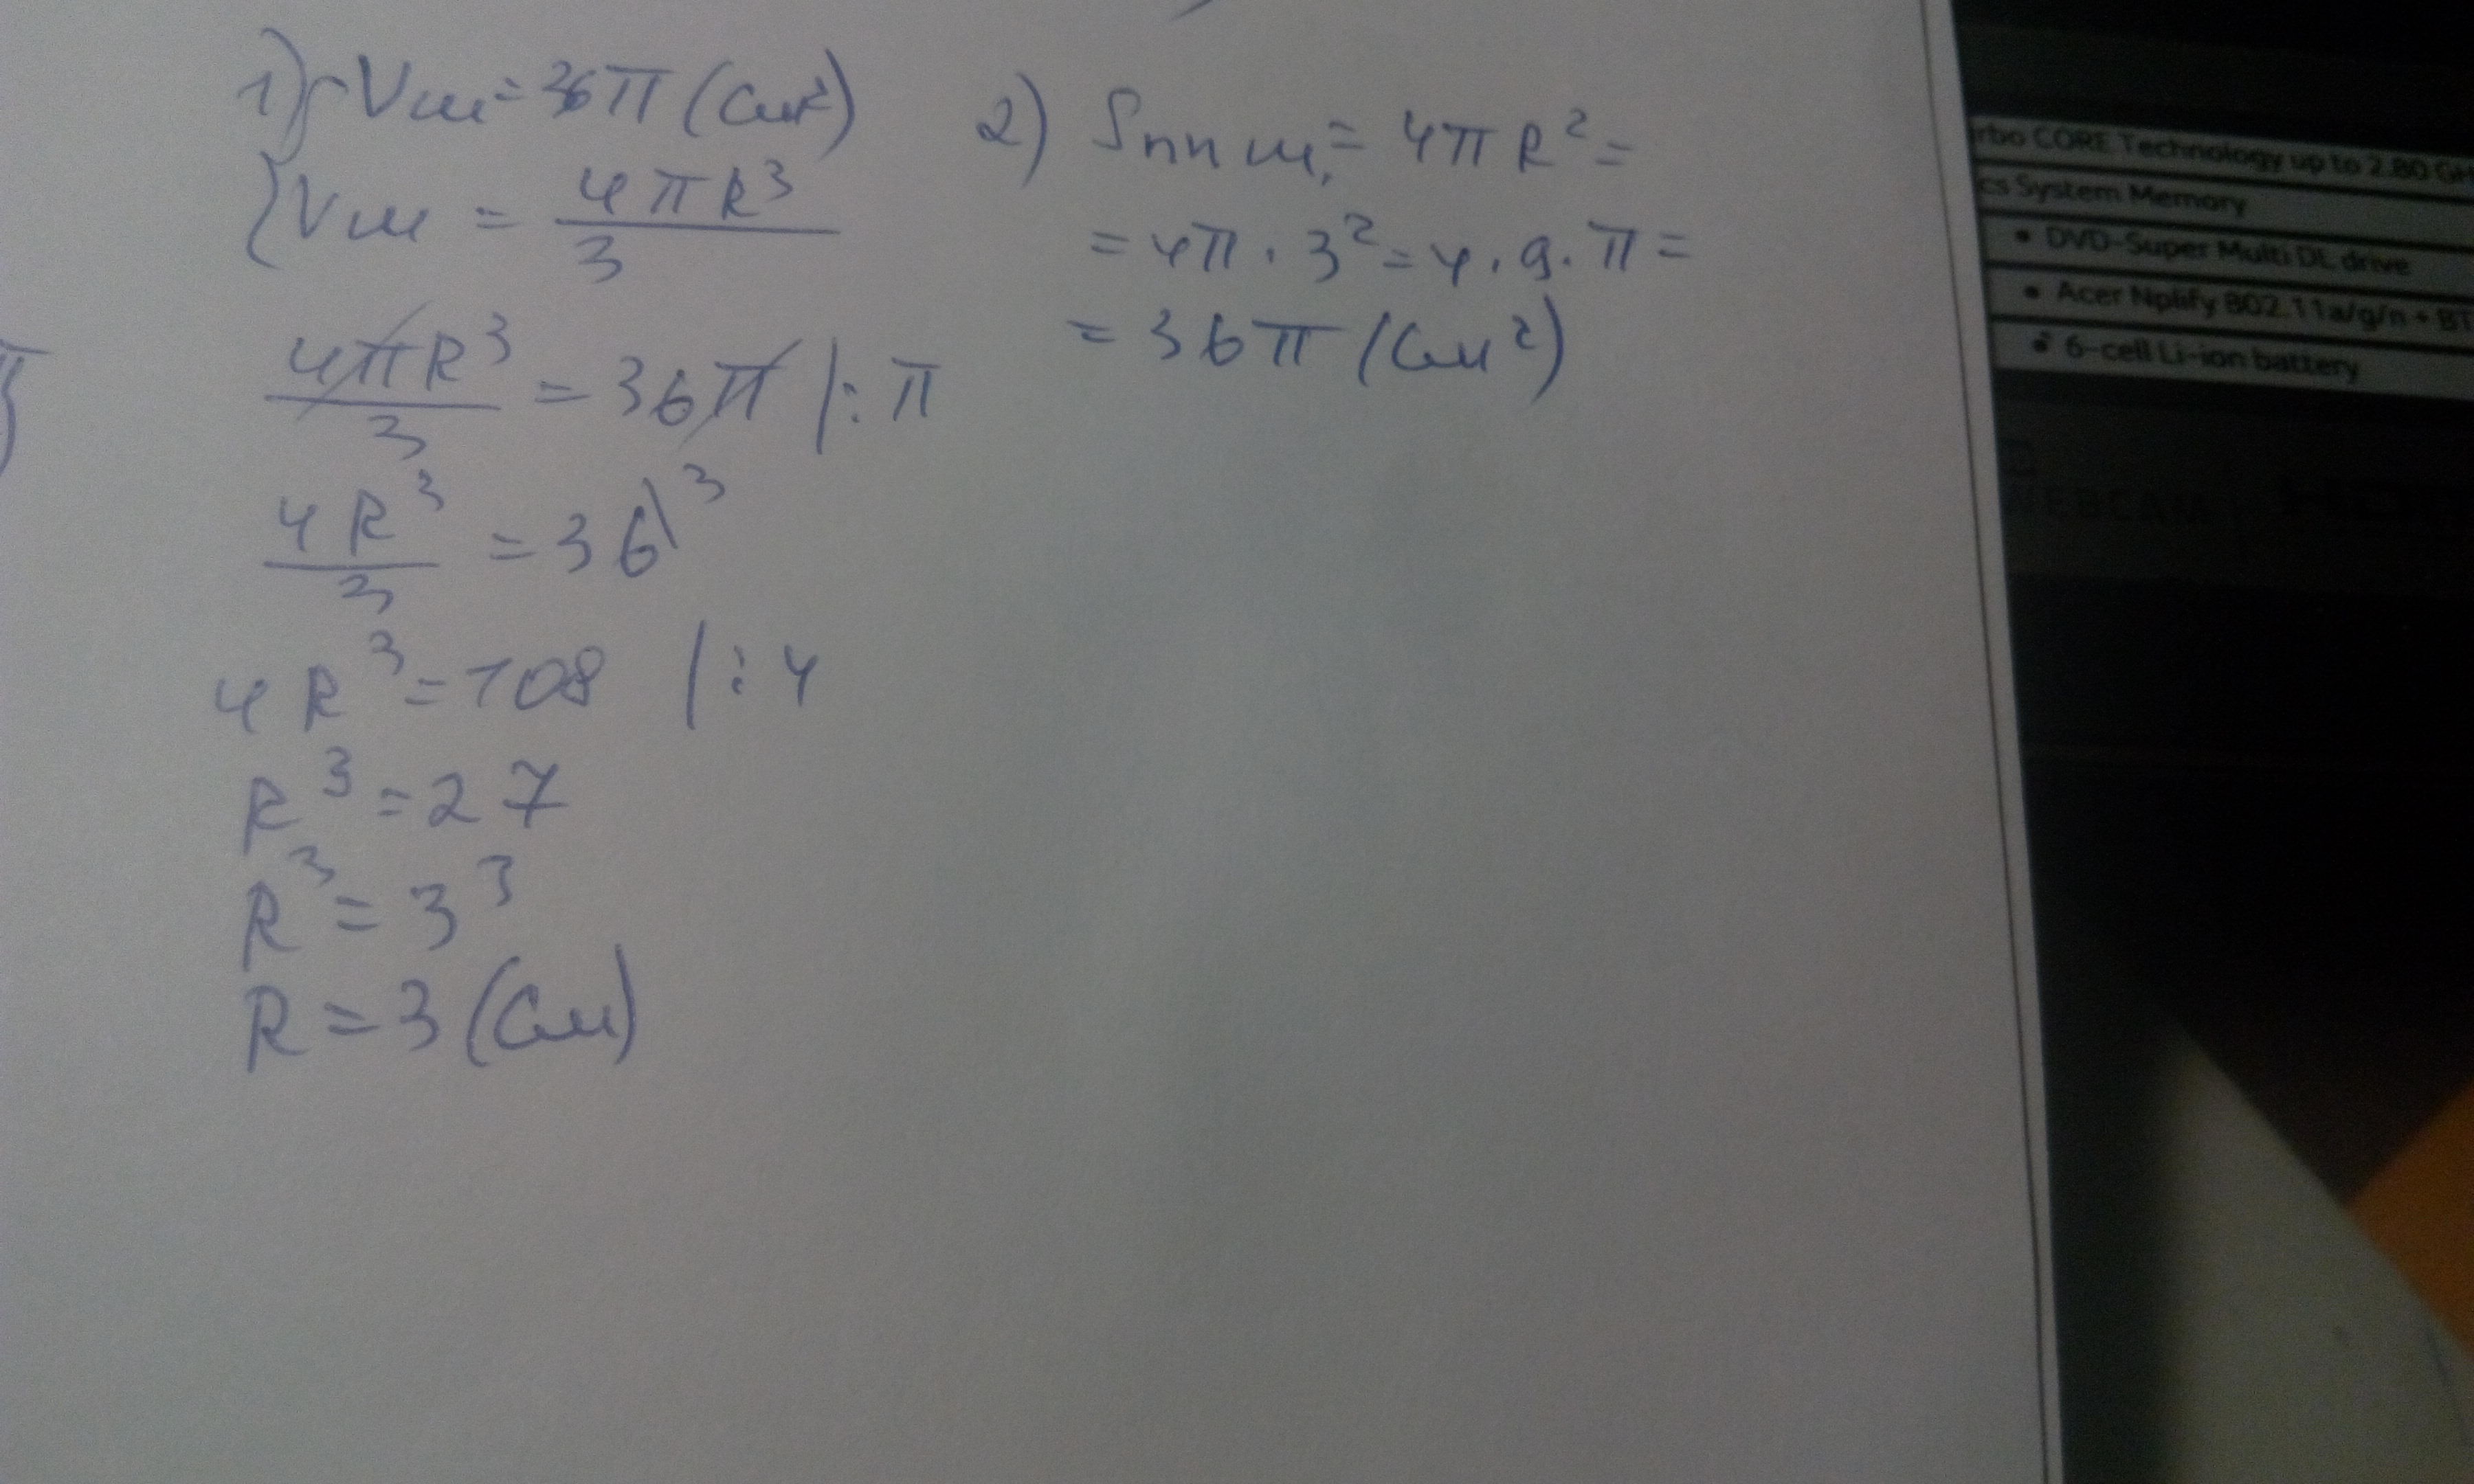 1) { Vш = 36π (см²)
{ Vш = 4πR³/3
4πR³/3 = 36π |: π
4R³/3 = 36\³
4R³ = 108 |: 4
R³ = 27
R³ = 3³
R = 3 (см)
2) Sпп ш, = 4πR² =
= 4π · 3² = 4 · 9 · π =
= 36π (см²)
rbo CORE Technology up to 2.80 GH
cs System Memory
• DVD-Super Multi DL drive
• Acer Nplify 802.11a/g/n + BT
• 6-cell Li-ion battery
WEBCAM